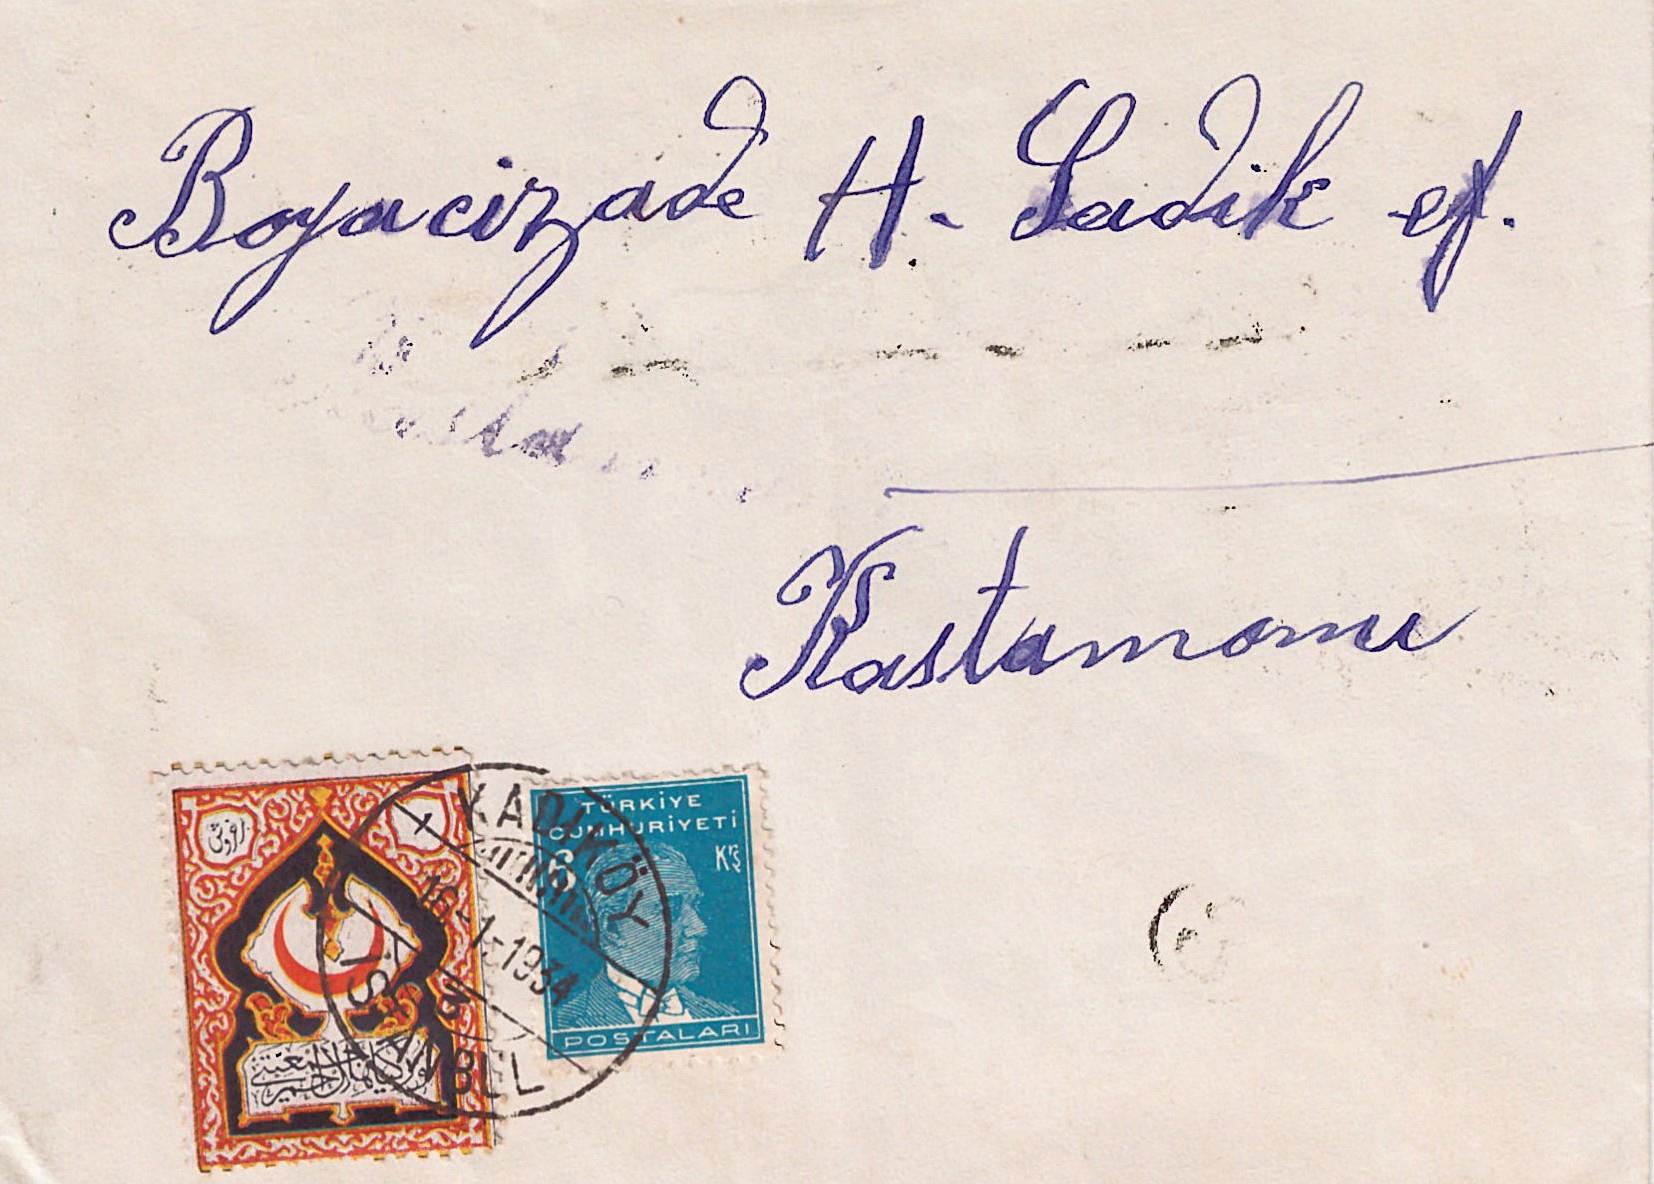 Boyacizade H. Sadik ef.
Kastamonu
TÜRKİYE
CUMHURİYETİ
6 Krş
POSTALARI
KADIKÖY
16-1-1934
3
İSTANBUL